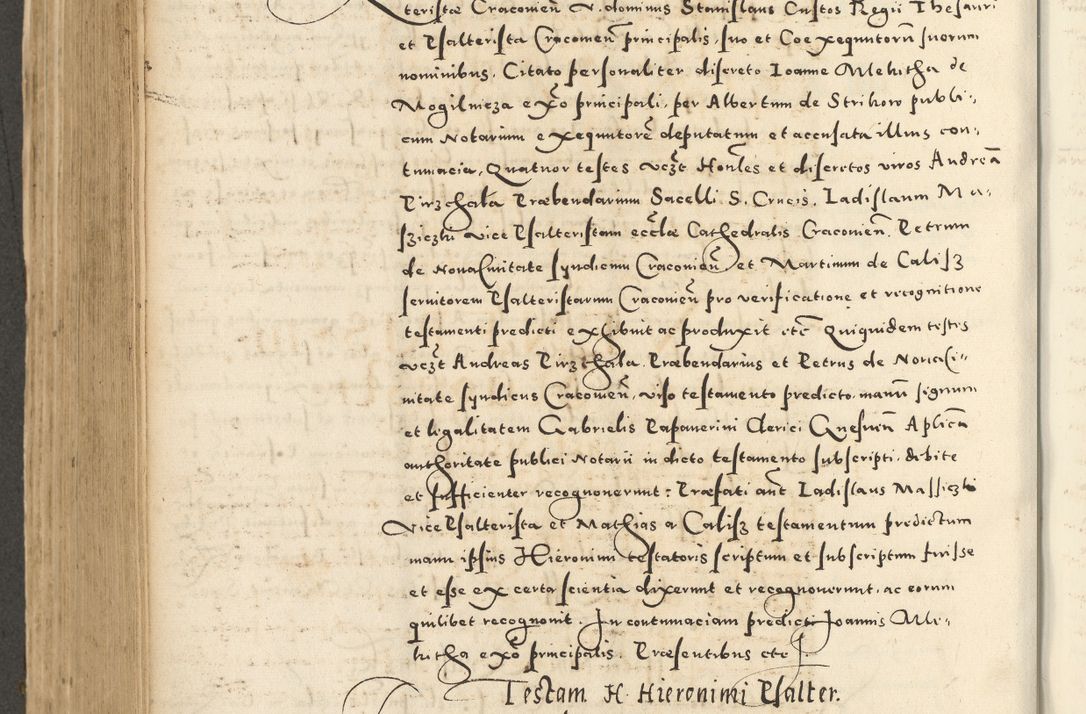 teristæ Cracovien̄ V. dominus Stanislaus Custos Regii Thesauri
et Psalterista Cracovien̄ principalis, suo et Coexequutorū suorum
nominibus. Citato personaliter discreto Ioanne Mehitha de
Mogilnicza exo̅ principali, per Albertum de Strikow publi-
cum Notarium exequutore̅ deputatum et accusata illius con-
tumacia, Quatuor testes vcz̅t Hon̄les et discretos viros Andrea̅
Pirzchala Præbendarium Sacelli S. Crucis, Ladislaum Ma-
szieczki vice Psalteristam eccl̄æ Cathedralis Cracovien̄. Petrum
de Nova Civitate syndicum Cracovien̄ et Martinum de Calisz
servitorem Psalteristarum Cracovien̄ pro verificatione et recognitione
testamenti predicti exhibuit ac produxit etc̄ Quiquidem testes
vcz̅t Andreas Pirzchala Præbendarius et Petrus de Nova Ci-
vitate syndicus Cracovien̄, viso testamento predicto, manū signum
et legalitatem Gabrielis Papaverini Clerici Gnesnen̄ Aplica̅
authoritate publici Notarii in dicto testamento subscripti, debite
et sufficienter recognoverunt: Præfati aūt Ladislaus Massiczki
Vice Psalterista et Mathias a Calisz testamentum predictum
manu ipsius Hieronimi testatoris scriptum et subscriptum fuisse
et esse ex certa scientia dixerunt et recognoverunt, ac eorum
quilibet recognovit. In contumaciam predicti Joannis Me-
hitha exo̅ principalis. Præsentibus etc
Testam. H. Hieronimi Psalter.